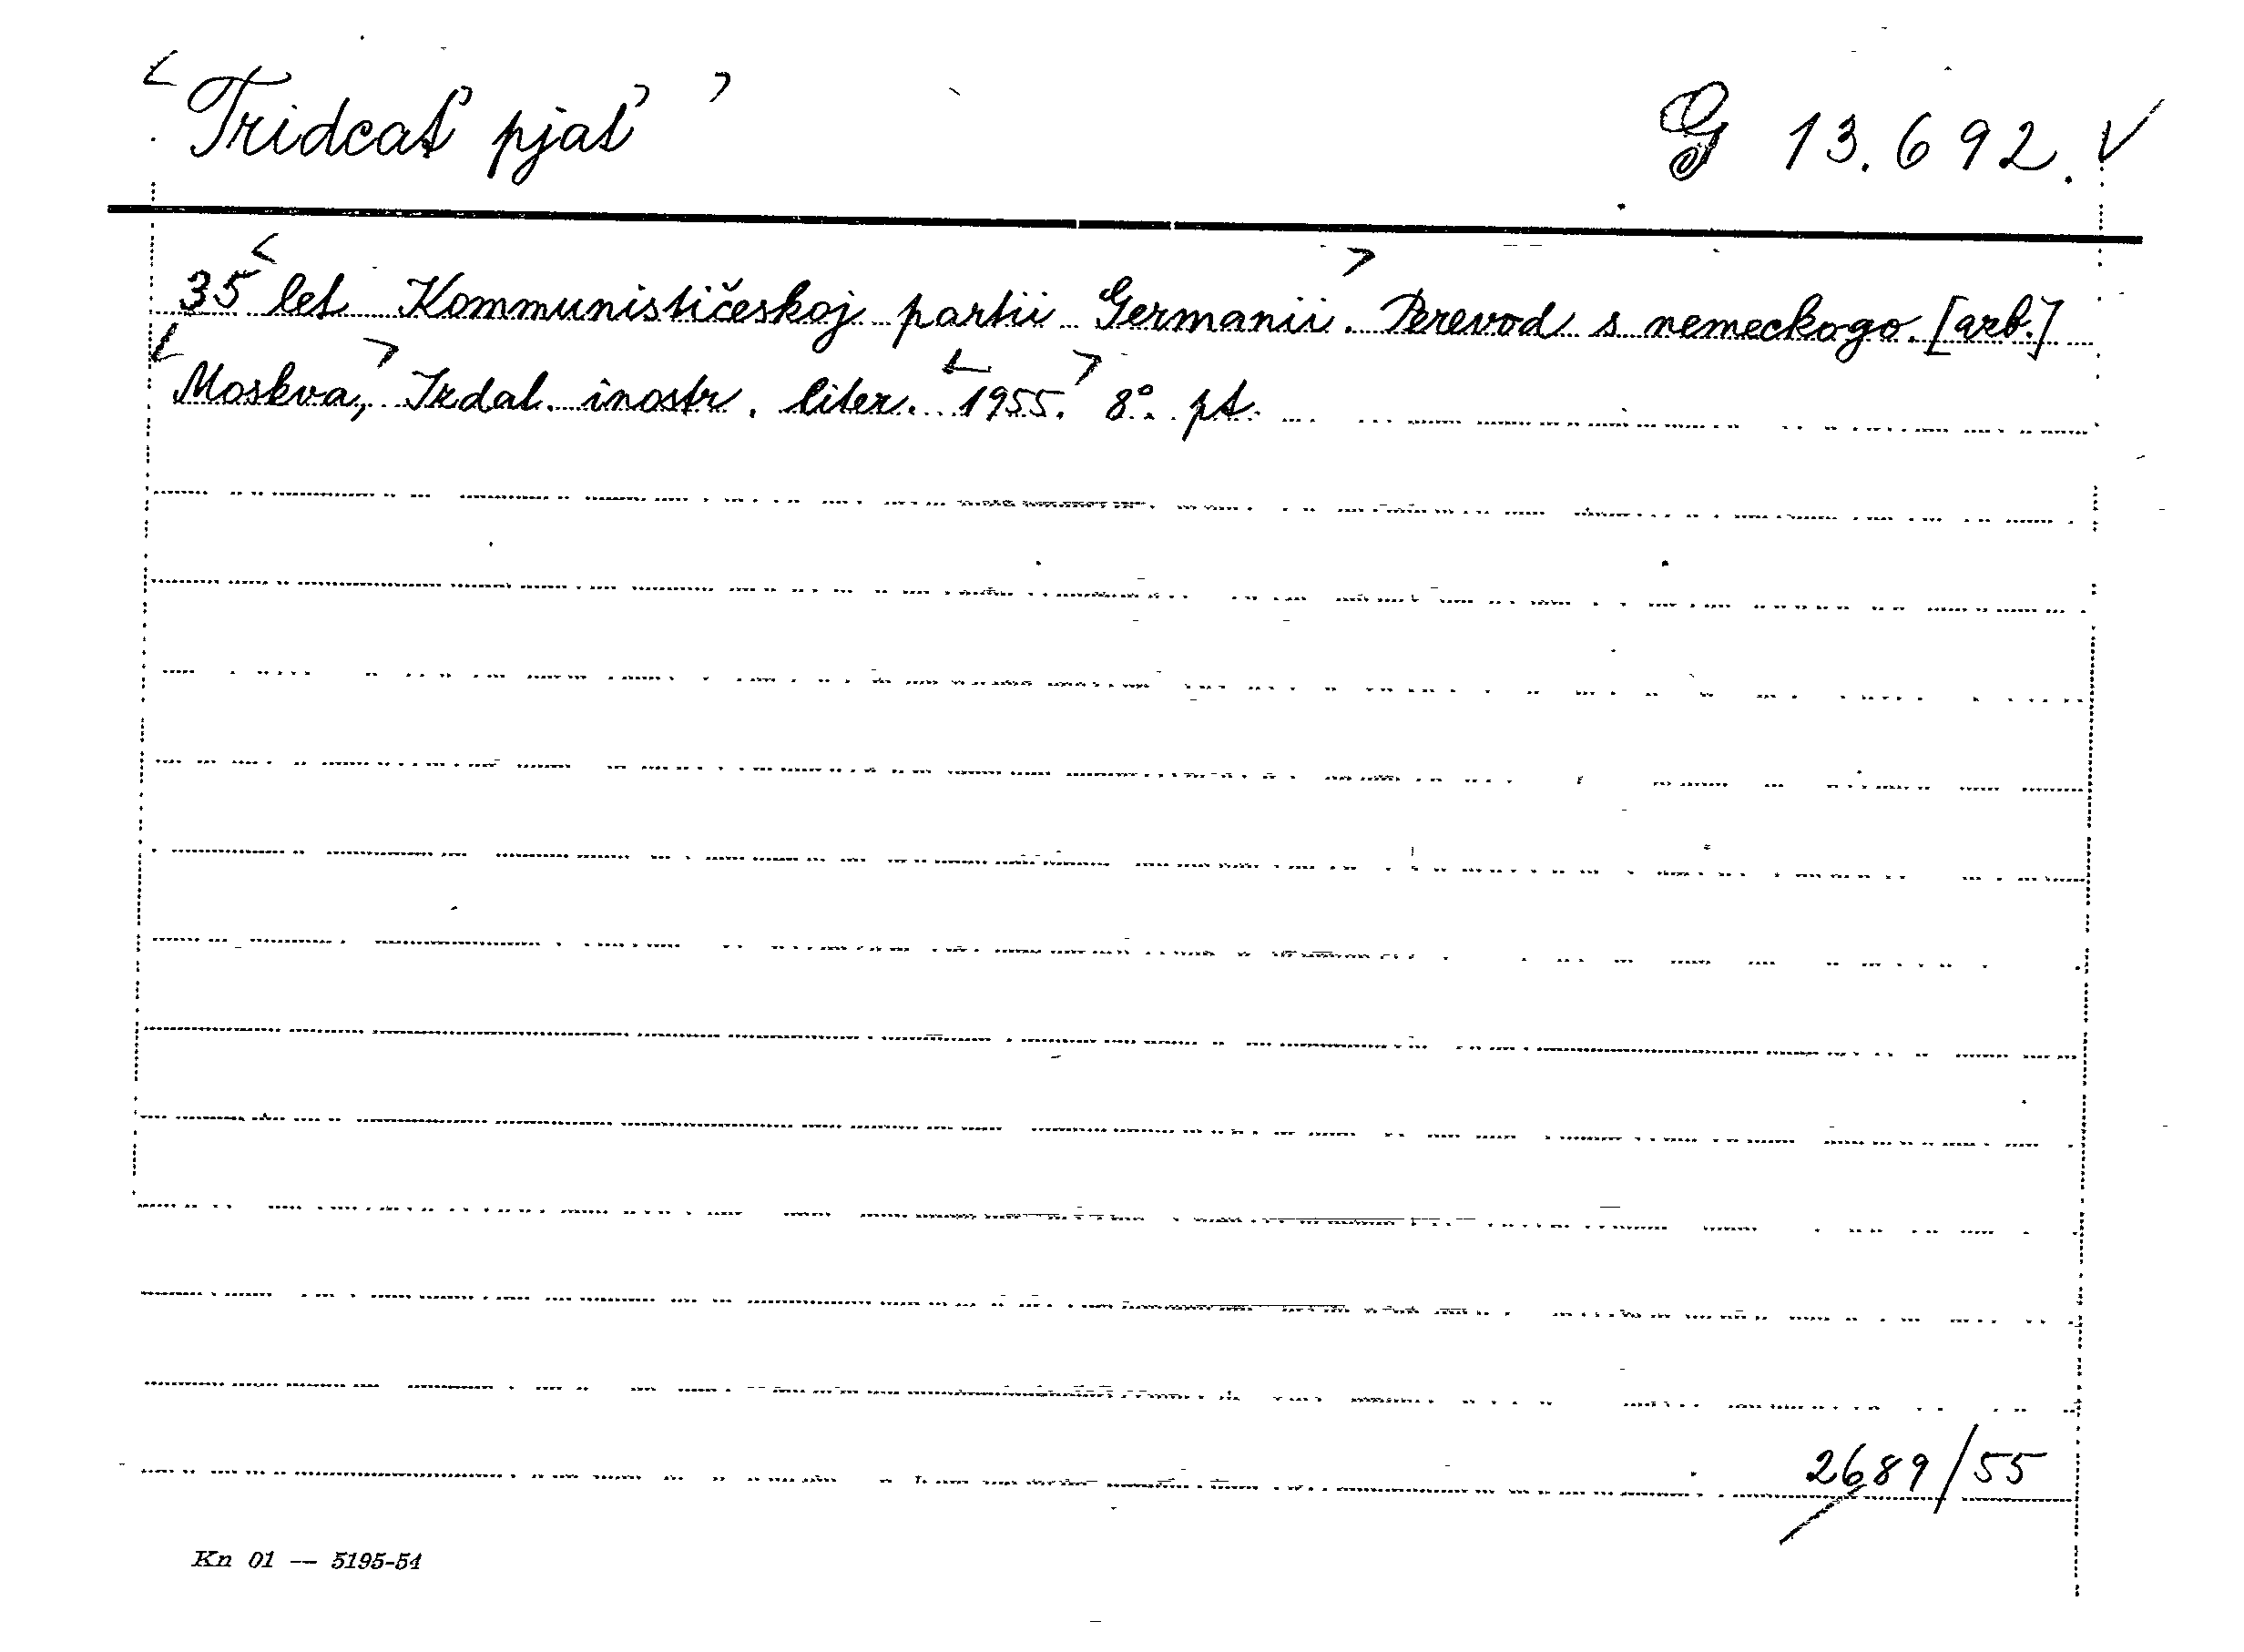 Tridcat' pjat' G 13.692.
35 let Kommunističeskoj partii Germanii. Perevod s nemeckogo. [arb.]
Moskva, Izdat. inostr. liter. 1955. 8°. pt.
2689/55
Kn 01 — 5195-54